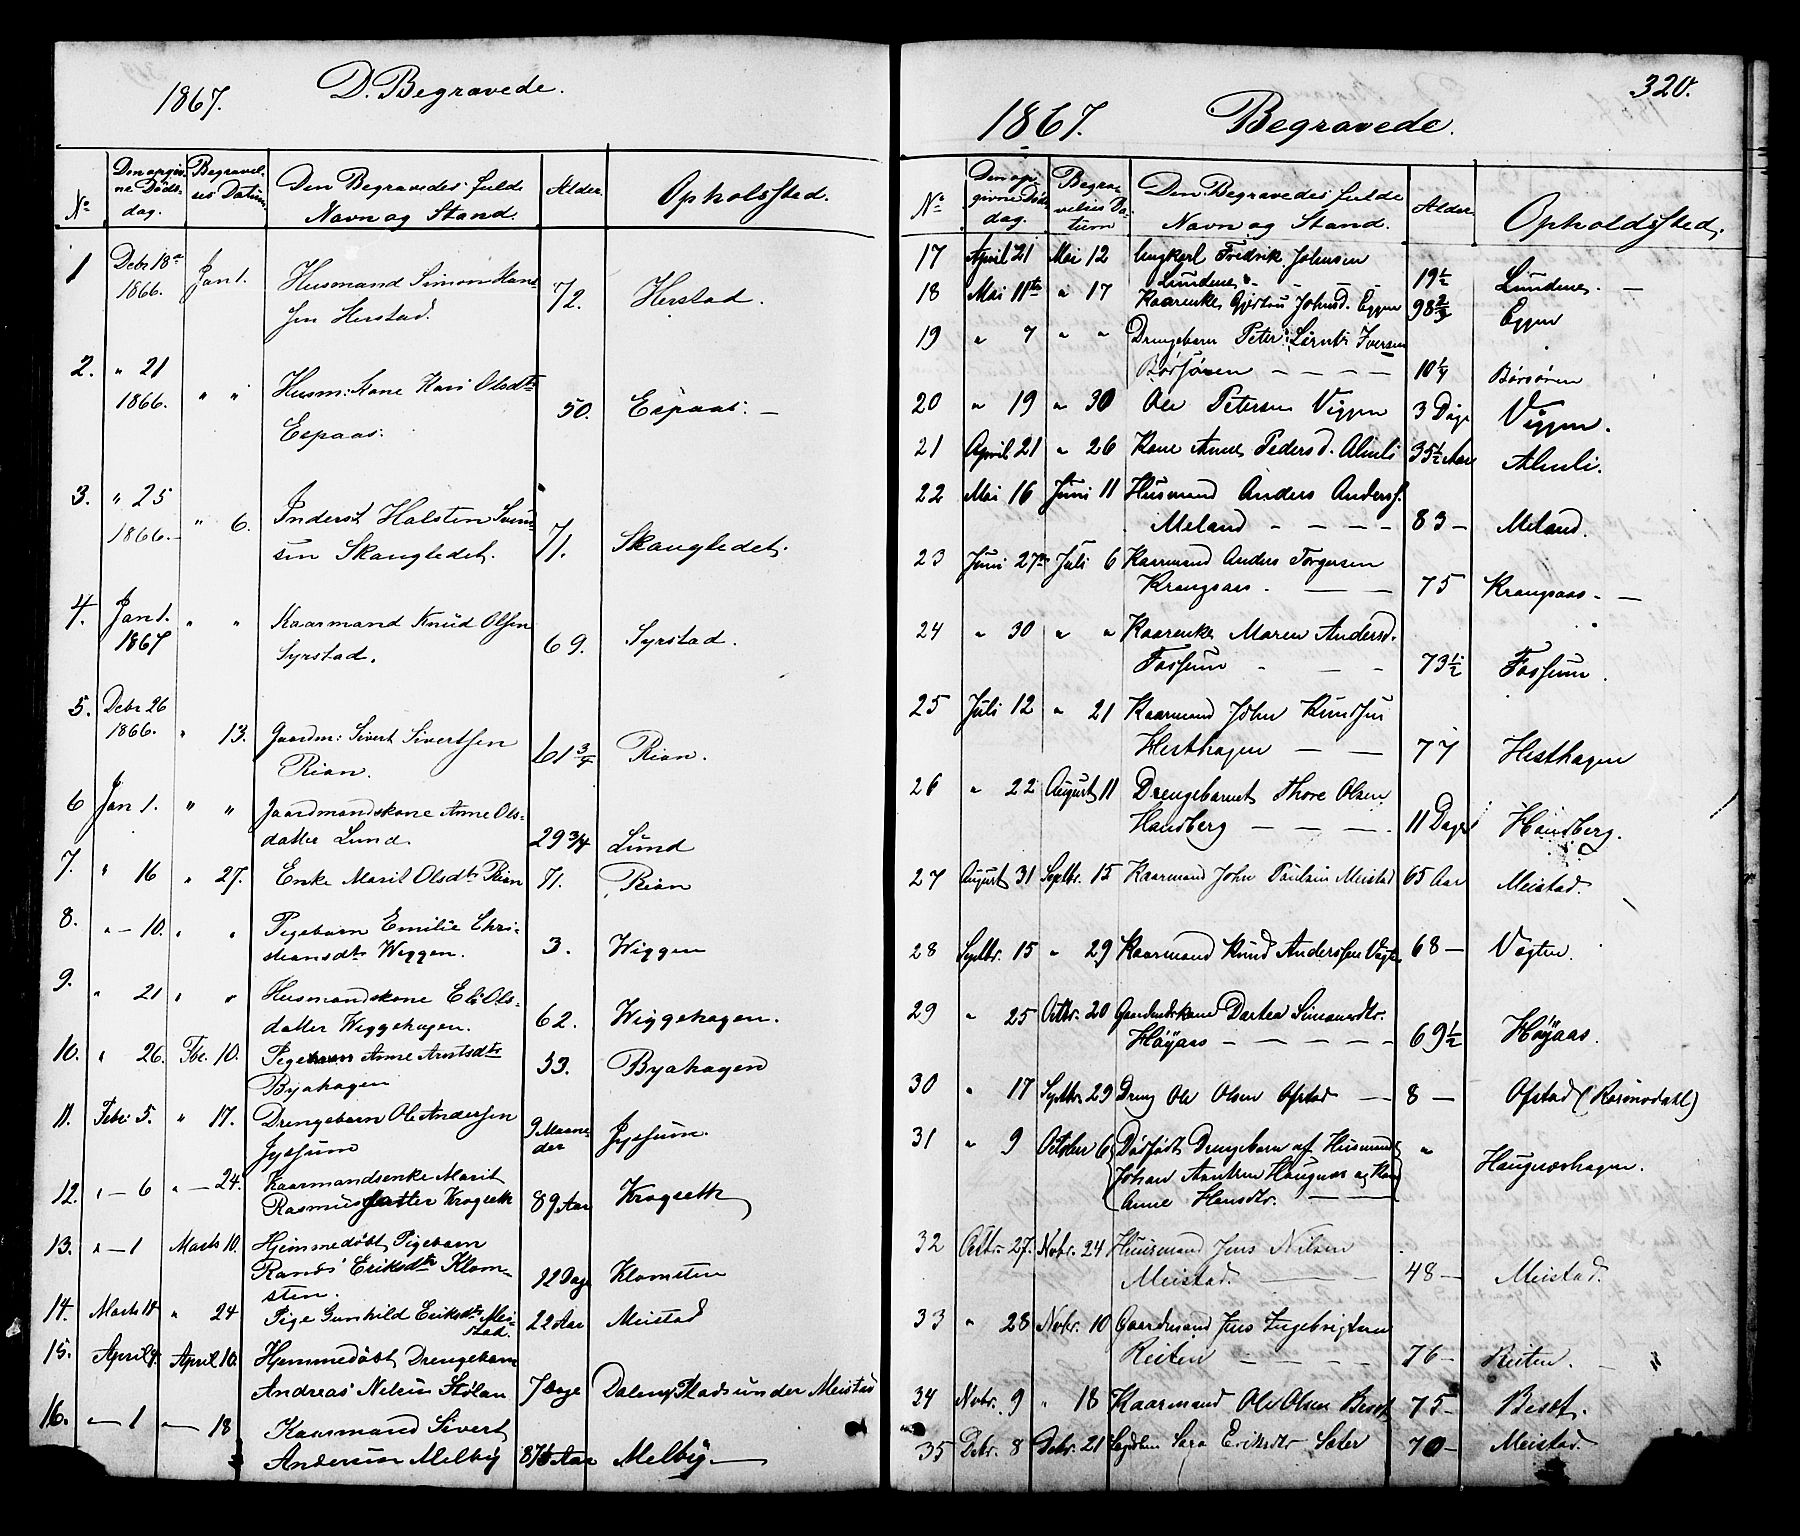 1867. D. Begravede.
No Den opgiv- Begravel- Den Begravedes fulde Alder. Opholdssted.
ne Døds- ses Datum. Navn og Stand.
dag.
1 Debr 18de Jan 1. Husmand Simon Han-
1866. sen Herstad. 72. Herstad.
2. " 21 Husm: Kone Kari Olsdtr
1866. " " Espaas. 50. Espaas. —
3. " 25 Inderst Halsten Svend-
1866. — " 6. sen Skaugledet. 71. Skaugledet.
4. Jan 1. " " Kaarmand Knud Olsen
1867 Syrstad. 69. Syrstad.
5. Debr 26
1866. " 13. Gaardm: Sivert Sivertsen
Rian. 61 3/4 Rian.
6 Jan 1. " " Gaardmandskone Anne Ols-
datter Lund. 29 3/4 Lund
7. " 16 " 27. Enke Marit Olsdtr Rian 71. Rian
8. " — 10. " " Pigebarn Emilie Chri-
stiansdtr Wiggen. 3. Wiggen
9. " 21 " " Husmandskone Eli Ols-
datter Wiggehagen. 62. Wiggehagen.
10. " 26. Fbr. 10. Pige Anne Arntsdtr
Byahagen 33. Byahagen
11. Febr 5. " 17. Drengebarn Ole Andersen 9 Maane-
Jyssum der Jyssum.
12. " — 6 " — 24. Kaarmandsenke Marit
Rasmusdatter Krogseth 89 Aar Krogseth
13. " — 1 Marts 10. Hjemmedøbt Pigebarn
Randi Eriksdtr Klom-
sten. 22 Dage Klomsten
14. Marts 14 " 24 Pige Gunhild Eriksdtr Mei-
stad. 22 Aar Meistad
15. April 4. April 10. Hjemmedøbt Drengebarn
Andreas Nelsen Stølan 7 Dage Dalen, Plads under Meistad
16. — 1 — 18 Kaarmand Sivert
Andersen Melby Aar Melby —
320.
1867. Begravede.
No Den op- Begra- Den Begravedes fulde Alder. Opholdssted.
givne Døds- velses Da- Navn og Stand.
dag. tum
17 April 21 Mai 12 Ungkarl Fredrik Johnsen
Lundene. - - - 19 1/2 Lundene. —
18 Mai 11te " 17 Kaarenke Gjertru Johnsd. Eggen 98 2/3 Eggen
19 " 7 " " Drengebarn Peter Bernt Iversen
Børsøren — — — — 10 1/4 Børsøren
20 " 19 " 30 Ole Petersen Viggen 3 Dage Viggen.
21 April 21 " 26 Kone Anne Pedersd. Almli 35 1/2 Aar Almli.
22 Mai 16 Juni 11 Husmand Anders Anders.
Meland - - - - 83 — Meland.
23 Juni 27de Juli 6 Kaarmand Anders Torgersen
Krangsaas. — — 75 Krangsaas. —
24 " 30 " " Kaarenke Maren Andersd.
Fossum - — - 73 1/2 Fossum.
25 Juli 12 " 21 Kaarmand John Knudsen
Hesthagen — — 77 Hesthagen
26 " 22 August 11 Drengebarnet Thore Olsen
Haudberg — — — . 11 Dage Haudberg.
27 August 31 Septbr. 15 Kaarmand John Paulsen Meistad 65 Aar Meistad.
28 Septbr. 15 " 29 Kaarmand Knud Anderssen 68 — Vogten.
29 " 25 Octbr. 20 Gaardmdskone Dortea Simonsdtr.
Høyaas — — — — — 69 1/2 Høyaas.
30 " 17 Septbr. 29 Dreng Ole Olsen Ofstad — 8 — Ofstad (Rosmodahl)
31 " 9 October 6 Dødfødt Drengebarn af Husmand "
Johan Arntsen Haugnæs og Kone Haugnæshagen.
Anne Hansdtr. — —
32 Octbr. 27. Novbr. 24 Huusmand Jens Nilsen
Meistad. — — 48 — Meistad.
33 " 28 Novbr. 10 Gaardmand Jens Ingebrigtsen
Reiten — — — — 76 — Reiten. —
34 Novbr. 9 " 18 Kaarmand Ole Olsen Beset 75 — Beset.
35 Debr. 8 Debr. 21 Sara Eriksdtr Sæter 70 — Meistad.